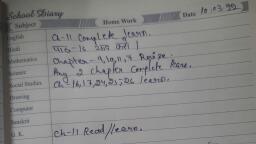 School Diary
Date 10.03.22
Subject Home Work
English Ch-11 Complete learn.
Hindi पाठ-16 याद करो।
Mathematics Chapter-9,10,11,7 Revise.
Science Any 2 chapter Complete Revise.
Social Studies Ch-16,17,24,25,26 learn.
Drawing
Computer
Sanskrit
G. K. Ch-11 Read/learn.